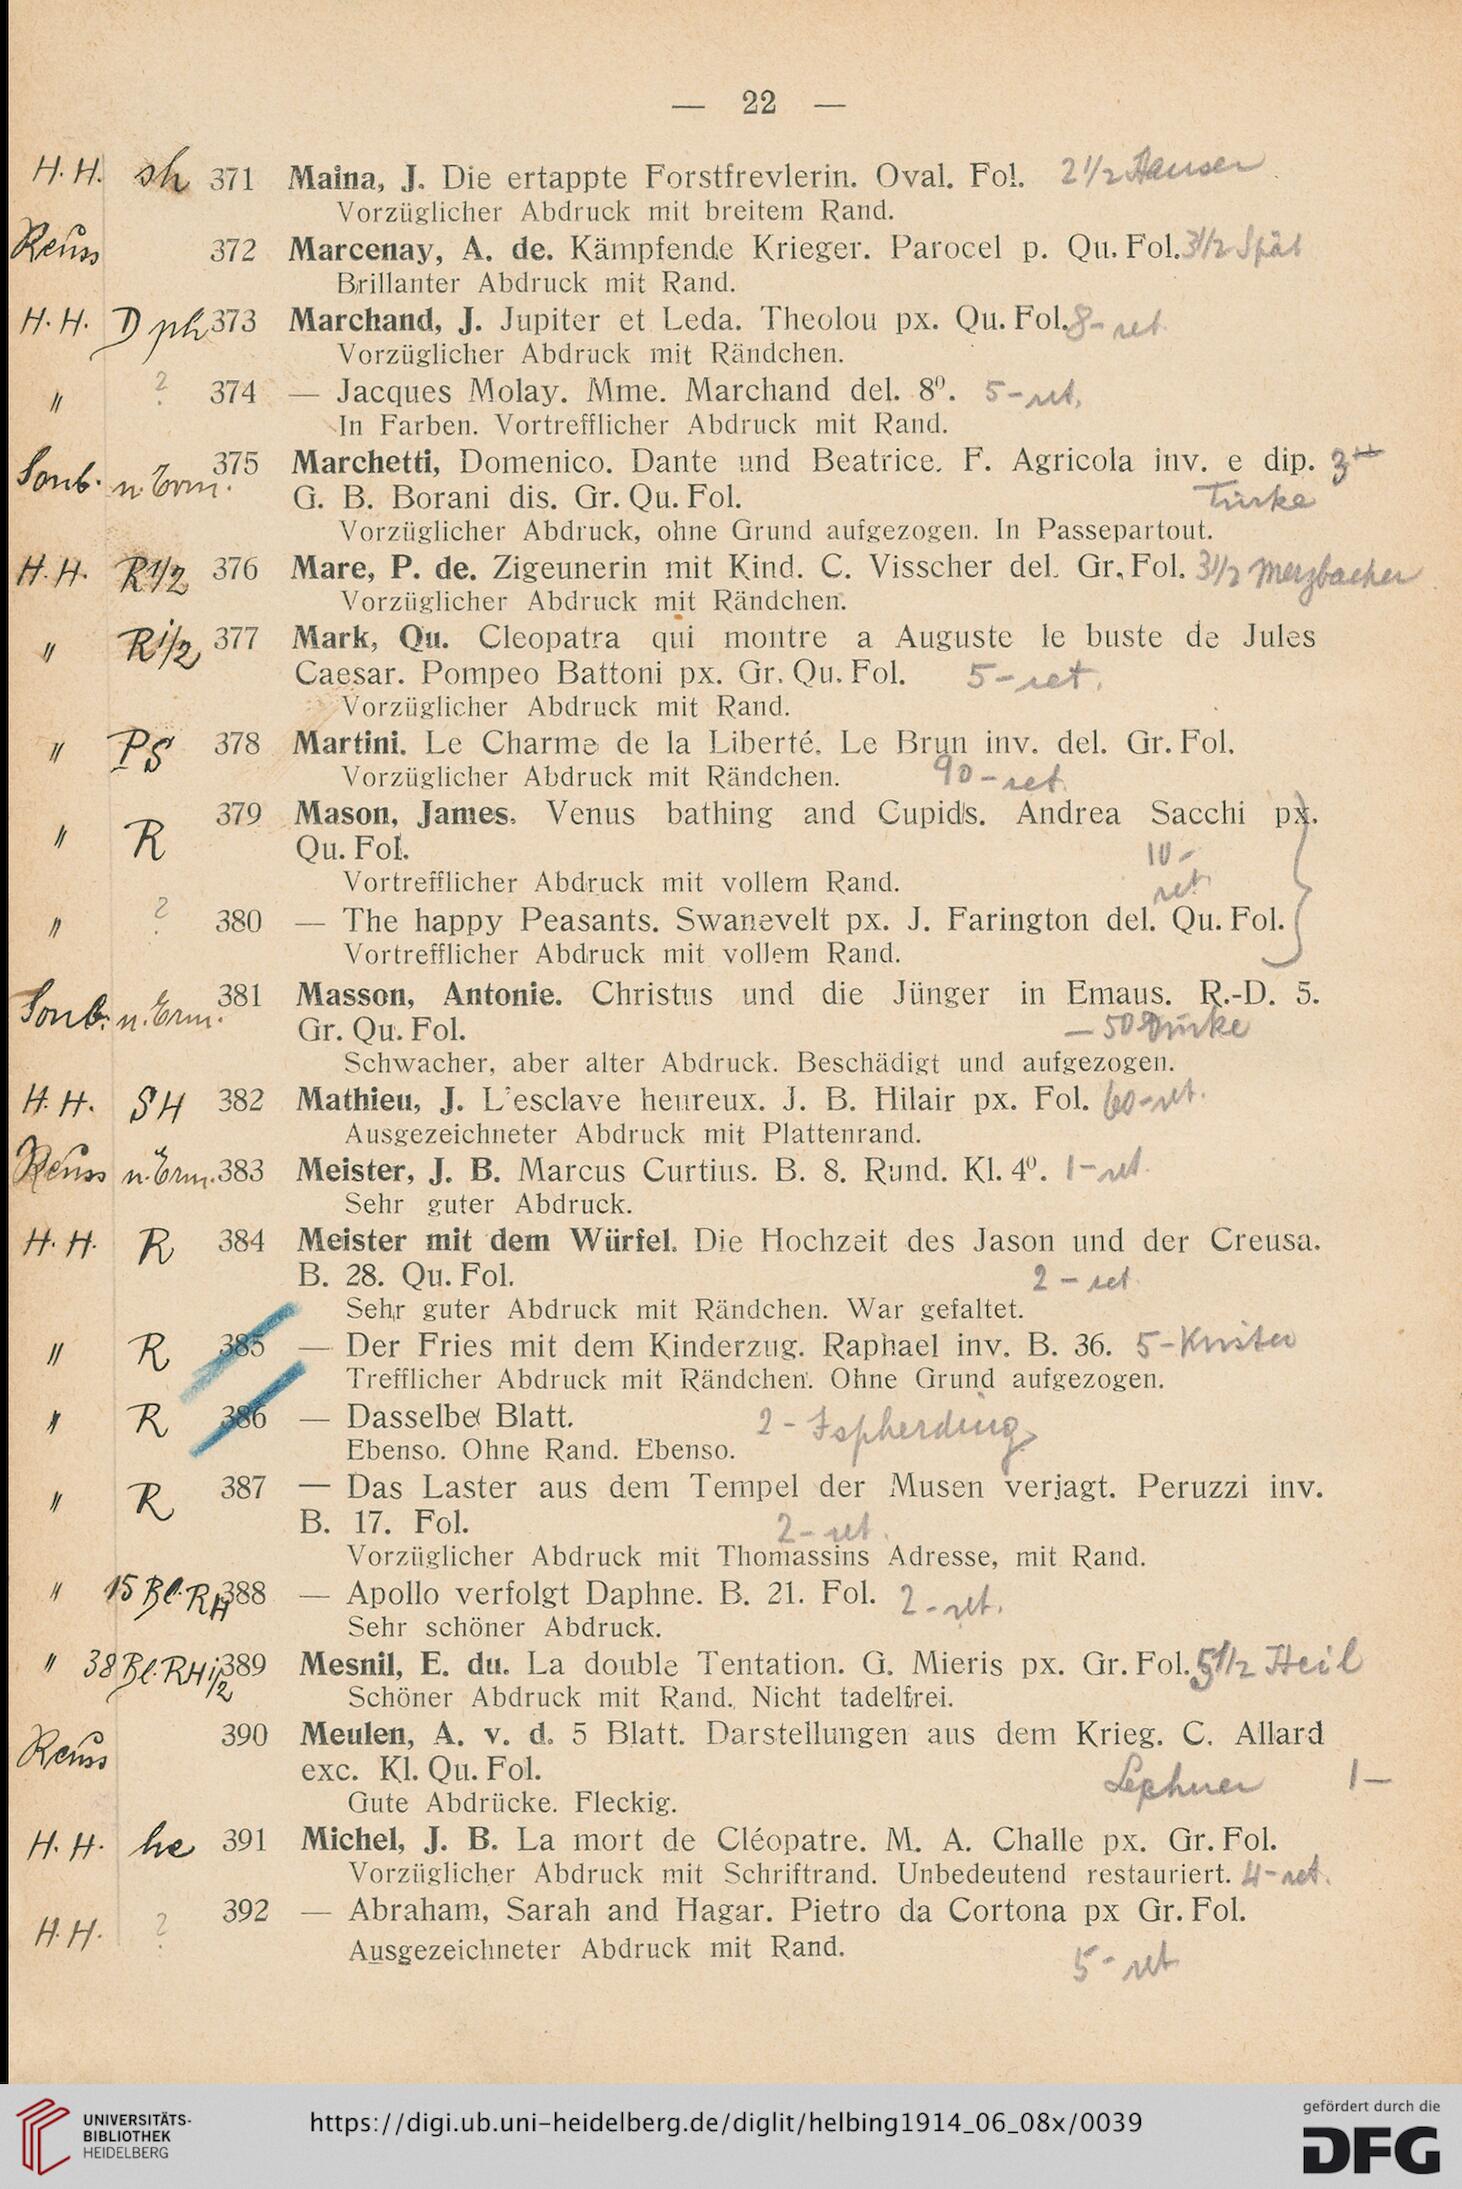 — 22 —
H. H. sh 371 Maina, J. Die ertappte Forstfrevlerin. Oval. Fol. 2½ Hauser
Vorzüglicher Abdruck mit breitem Rand.
Reuss 372 Marcenay, A. de. Kämpfende Krieger. Parocel p. Qu. Fol. 3½ Spät
Brillanter Abdruck mit Rand.
H. H. D ph 373 Marchand, J. Jupiter et Leda. Theolou px. Qu. Fol. 8- ret
Vorzüglicher Abdruck mit Rändchen.
" ? 374 — Jacques Molay. Mme. Marchand del. 8⁰. 5- ret.
In Farben. Vortrefflicher Abdruck mit Rand.
375 Marchetti, Domenico. Dante und Beatrice. F. Agricola inv. e dip. 3
G. B. Borani dis. Gr. Qu. Fol. Türke
Vorzüglicher Abdruck, ohne Grund aufgezogen. In Passepartout.
H. H. R½ 376 Mare, P. de. Zigeunerin mit Kind. C. Visscher del. Gr. Fol. 3½ Merzbacher
Vorzüglicher Abdruck mit Rändchen.
" R½ 377 Mark, Qu. Cleopatra qui montre a Auguste le buste de Jules
Caesar. Pompeo Battoni px. Gr. Qu. Fol. 5- ret.
Vorzüglicher Abdruck mit Rand.
" PS 378 Martini. Le Charme de la Liberté. Le Brun inv. del. Gr. Fol.
Vorzüglicher Abdruck mit Rändchen. 90- ret
" R 379 Mason, James. Venus bathing and Cupids. Andrea Sacchi px.
Qu. Fol. 10-
Vortrefflicher Abdruck mit vollem Rand. ret
" ? 380 — The happy Peasants. Swanevelt px. J. Farington del. Qu. Fol.
Vortrefflicher Abdruck mit vollem Rand.
381 Masson, Antonie. Christus und die Jünger in Emaus. R.-D. 5.
Gr. Qu. Fol. — 50 Türke
Schwacher, aber alter Abdruck. Beschädigt und aufgezogen.
H. H. SH 382 Mathieu, J. L'esclave heureux. J. B. Hilair px. Fol. 60- ret.
Ausgezeichneter Abdruck mit Plattenrand.
Reuss 383 Meister, J. B. Marcus Curtius. B. 8. Rund. Kl. 4⁰. 1- ret.
Sehr guter Abdruck.
H. H. R 384 Meister mit dem Würfel. Die Hochzeit des Jason und der Creusa.
B. 28. Qu. Fol. 2 - ret
Sehr guter Abdruck mit Rändchen. War gefaltet.
" R 385 — Der Fries mit dem Kinderzug. Raphael inv. B. 36. 5-
Trefflicher Abdruck mit Rändchen. Ohne Grund aufgezogen.
" R 386 — Dasselbe Blatt. 2 -
Ebenso. Ohne Rand. Ebenso.
" R 387 — Das Laster aus dem Tempel der Musen verjagt. Peruzzi inv.
B. 17. Fol. 2- ret.
Vorzüglicher Abdruck mit Thomassins Adresse, mit Rand.
" 15 Bl. RH 388 — Apollo verfolgt Daphne. B. 21. Fol. 2- ret.
Sehr schöner Abdruck.
" 38 Bl. RH ½ 389 Mesnil, E. du. La double Tentation. G. Mieris px. Gr. Fol. 5½ Heil
Schöner Abdruck mit Rand. Nicht tadelfrei.
Reuss 390 Meulen, A. v. d. 5 Blatt. Darstellungen aus dem Krieg. C. Allard
exc. Kl. Qu. Fol. 1—
Gute Abdrücke. Fleckig.
H. H. he 391 Michel, J. B. La mort de Cléopatre. M. A. Challe px. Gr. Fol.
Vorzüglicher Abdruck mit Schriftrand. Unbedeutend restauriert. 4- ret.
H. H. ? 392 — Abraham, Sarah and Hagar. Pietro da Cortona px Gr. Fol.
Ausgezeichneter Abdruck mit Rand. 5- ret
UNIVERSITÄTS-
BIBLIOTHEK
HEIDELBERG
https://digi.ub.uni-heidelberg.de/diglit/helbing1914_06_08x/0039
gefördert durch die
DFG